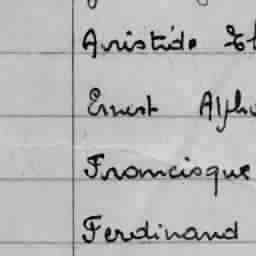 Aristide
Ernest
Francisque
Ferdinand